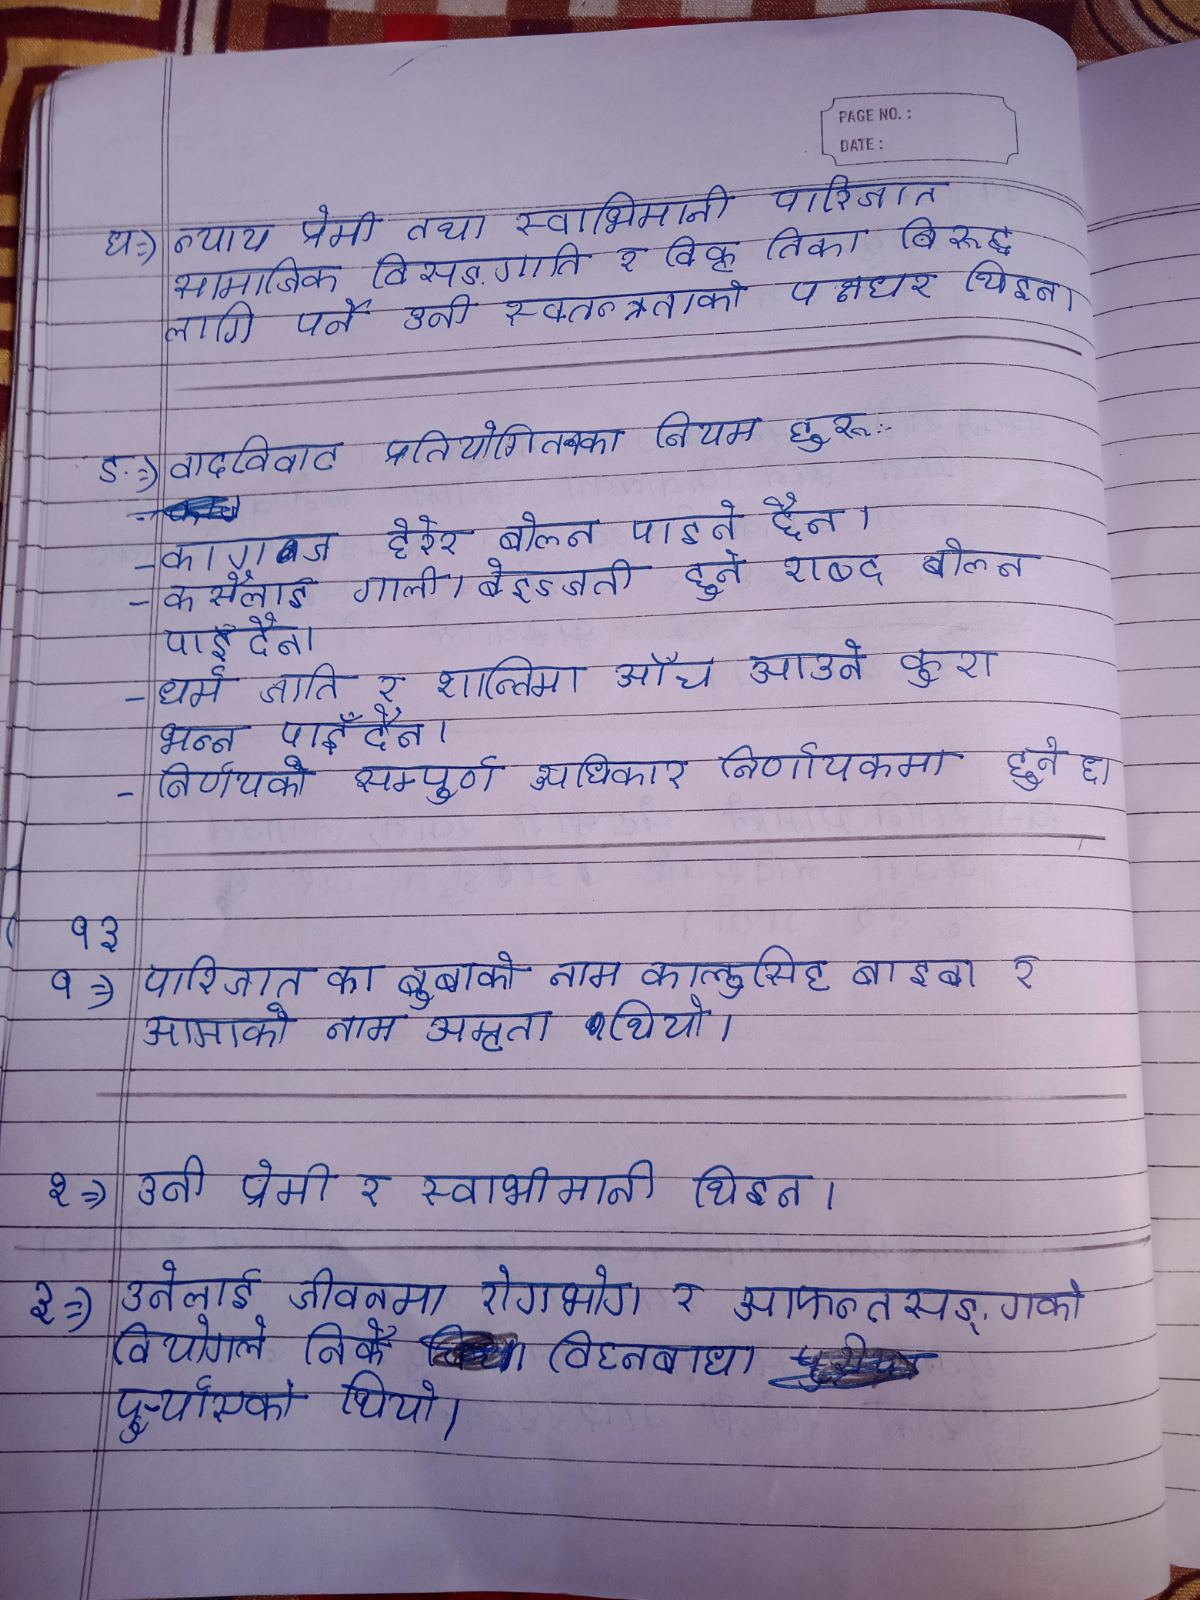 PAGE NO. :
DATE :
घ⇒) न्याय प्रेमी तथा स्वाभिमानी पारिजात
सामाजिक विसङ्गाति र विकृतिका बिरूद्ध
लागि पर्ने उनी स्वतन्त्रताको पक्षधर थिइन।
ङ⇒) वादविवाद प्रतियोगितका नियम हुरू:-
- कागज हेरेर बोल्न पाइने छैन।
- कसैलाई गाली।बेइज्जती हुने शब्द बोल्न
पाइँदैन।
- धर्म जाति र शान्तिमा आँच आउने कुरा
भन्न पाइँदैन।
- निर्णयको सम्पुर्ण अधिकार निर्णायकमा हुने छ।
१३
१⇒) पारिजात का बुबाको नाम कालुसिह बाइबा र
आमाको नाम अमृता थियो।
२⇒) उनी प्रेमी र स्वाभीमानी थिइन।
३⇒) उनेलाई जीवनमा रोगभोग र आफन्तसङ्गको
वियोगले निकै विघ्नबाधा
पुर्याएको थियो।